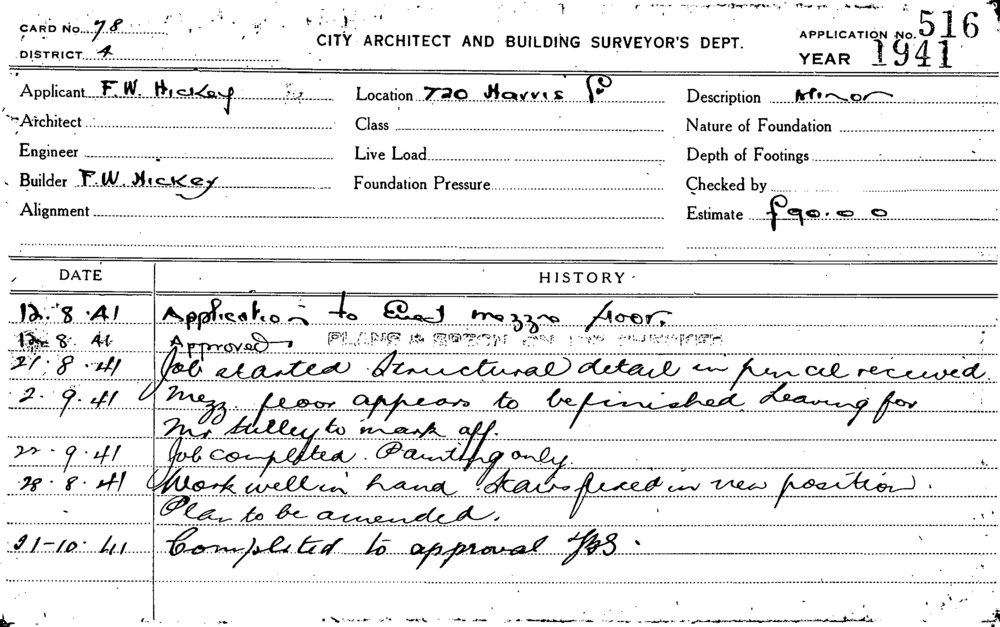 CARD No. 78
DISTRICT 4
CITY ARCHITECT AND BUILDING SURVEYOR'S DEPT.
APPLICATION No. 516
YEAR 1941
Applicant F.W. Hickey Location 720 Harris St Description Minor
Architect Class Nature of Foundation
Engineer Live Load Depth of Footings
Builder F.W. Hickey Foundation Pressure Checked by
Alignment Estimate £90.0.0
DATE HISTORY
12.8.41 Application to Erect mezza floor.
12.8.41 Approved PLANS & SPECN ON
21.8.41 Job started Structural detail in pencil received.
2.9.41 Mezz floor appears to be finished Leaving for
Mr to mark off.
22.9.41 Job completed. Painting only.
28.8.41 Work well in hand Stairs fixed in new position.
Plan to be amended.
21-10-41 Completed to approval